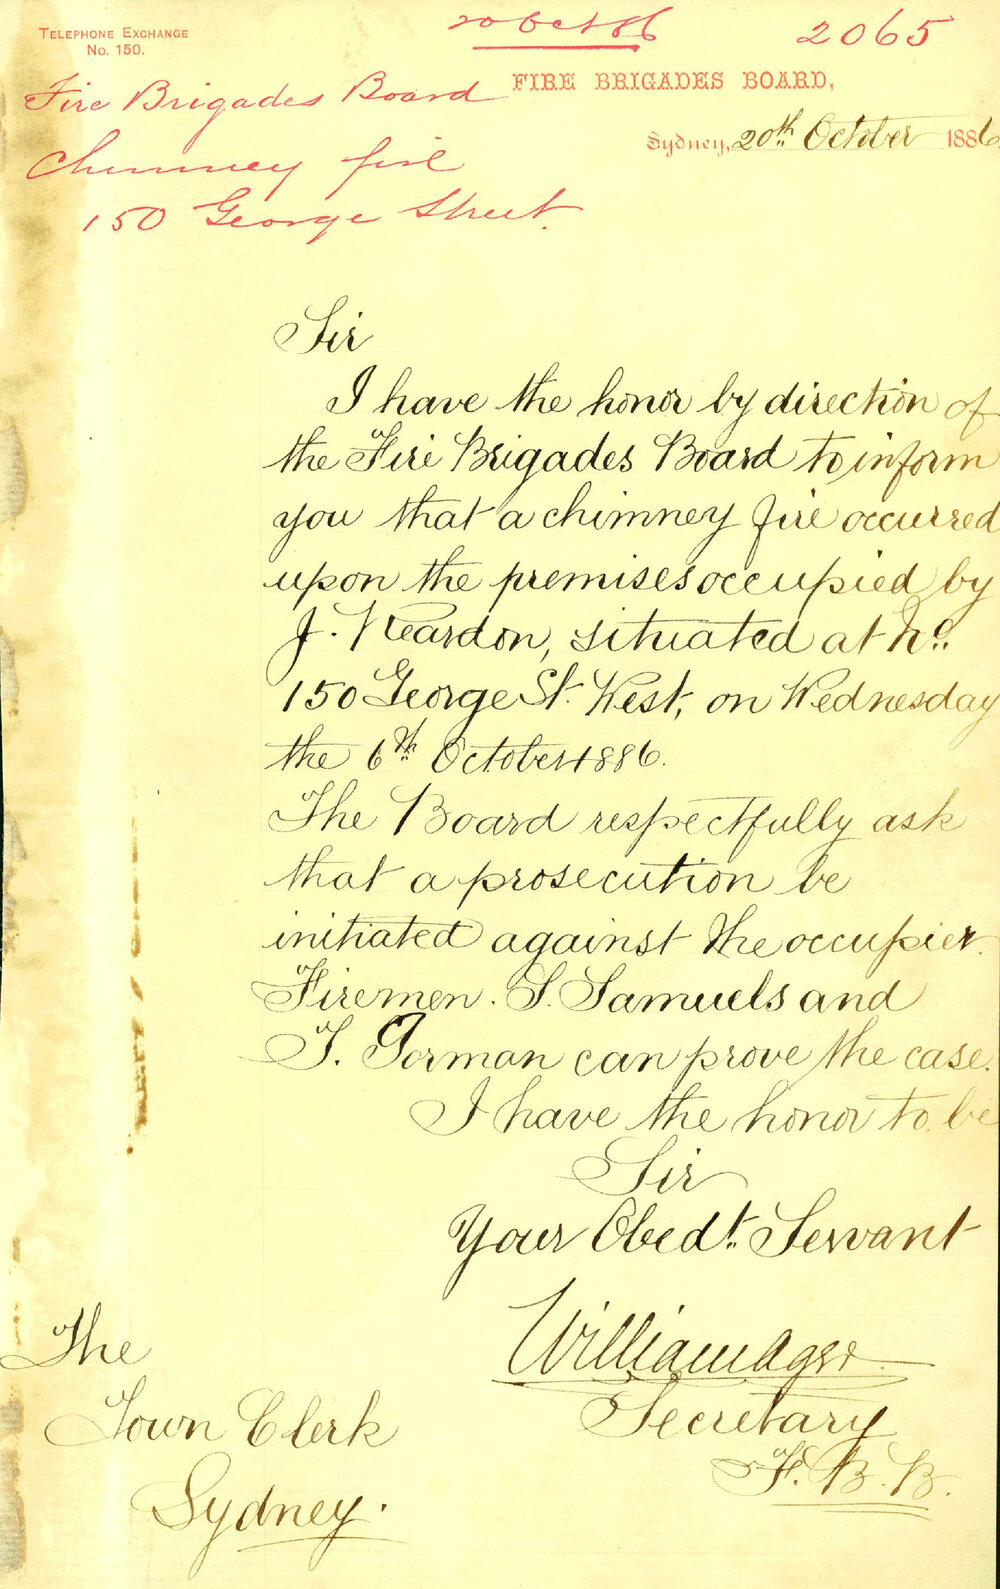 TELEPHONE EXCHANGE
No. 150.
20 Oct 86
2065
Fire Brigades Board
Chimney fire
150 George Street.
FIRE BRIGADES BOARD,
Sydney, 20th October 1886
Sir
I have the honor by direction of
the Fire Brigades Board to inform
you that a chimney fire occurred
upon the premises occupied by
J. Reardon, situated at No.
150 George St. West, on Wednesday
the 6th October 1886.
The Board respectfully ask
that a prosecution be
initiated against the occupier.
Firemen. S. Samuels and
T. Gorman can prove the case.
I have the honor to be
Sir
Your Obedt. Servant
William Ager
Secretary
F. B. B.
The
Town Clerk
Sydney.